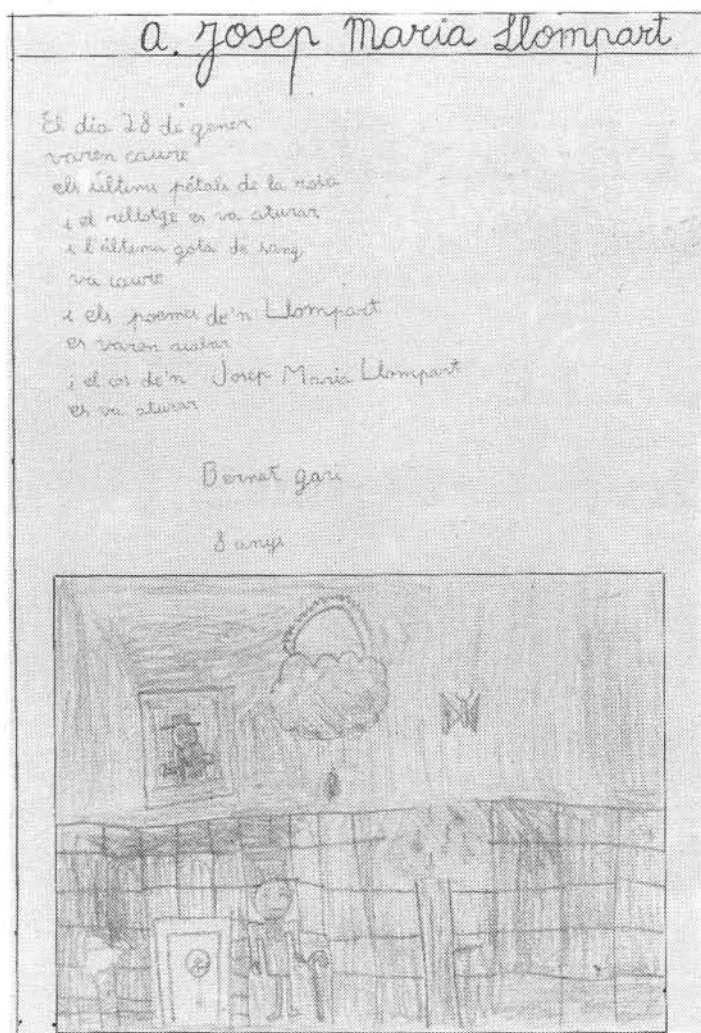 a. Josep Maria Llompart
El dia 28 de gener
varen caure
els últims pétals de la rosa
i el rellotge es va aturar
i l'última gota de sang
va caure
i els poemes de'n Llompart
es varen acabar
i el cos de'n Josep Maria Llompart
es va aturar
Bernat Gari
8 anys